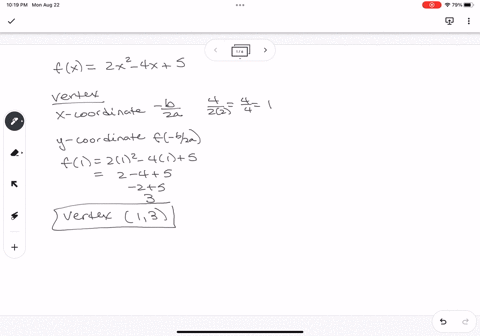 10:19 PM Mon Aug 22
79%
1/6
f(x) = 2x² - 4x + 5
vertex
x-coordinate -b/2a 4/2(2) = 4/4 = 1
y-coordinate f(-b/2a)
f(1) = 2(1)² - 4(1) + 5
= 2 - 4 + 5
-2 + 5
3
Vertex (1, 3)